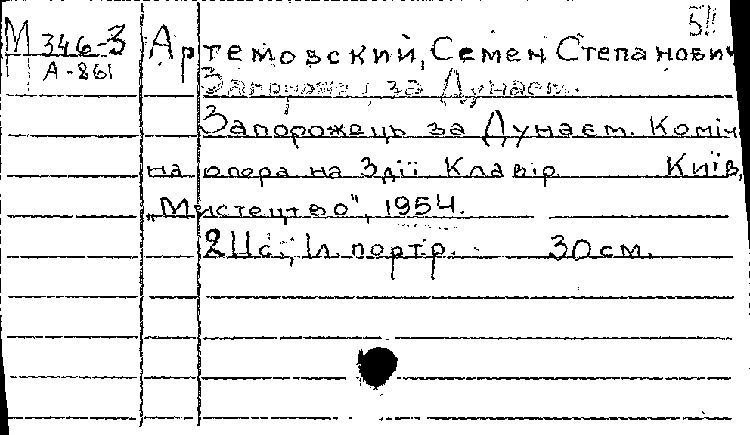 5!!
М 346-3 Артемовский, Семен Степанович
А-861
Запорожец за Дунаем.
Запорожець за Дунаєм. Коміч
на опера на 3 дії Клавір Київ,
„Мистецтво", 1954.
211с., 1л. портр. 30 см.